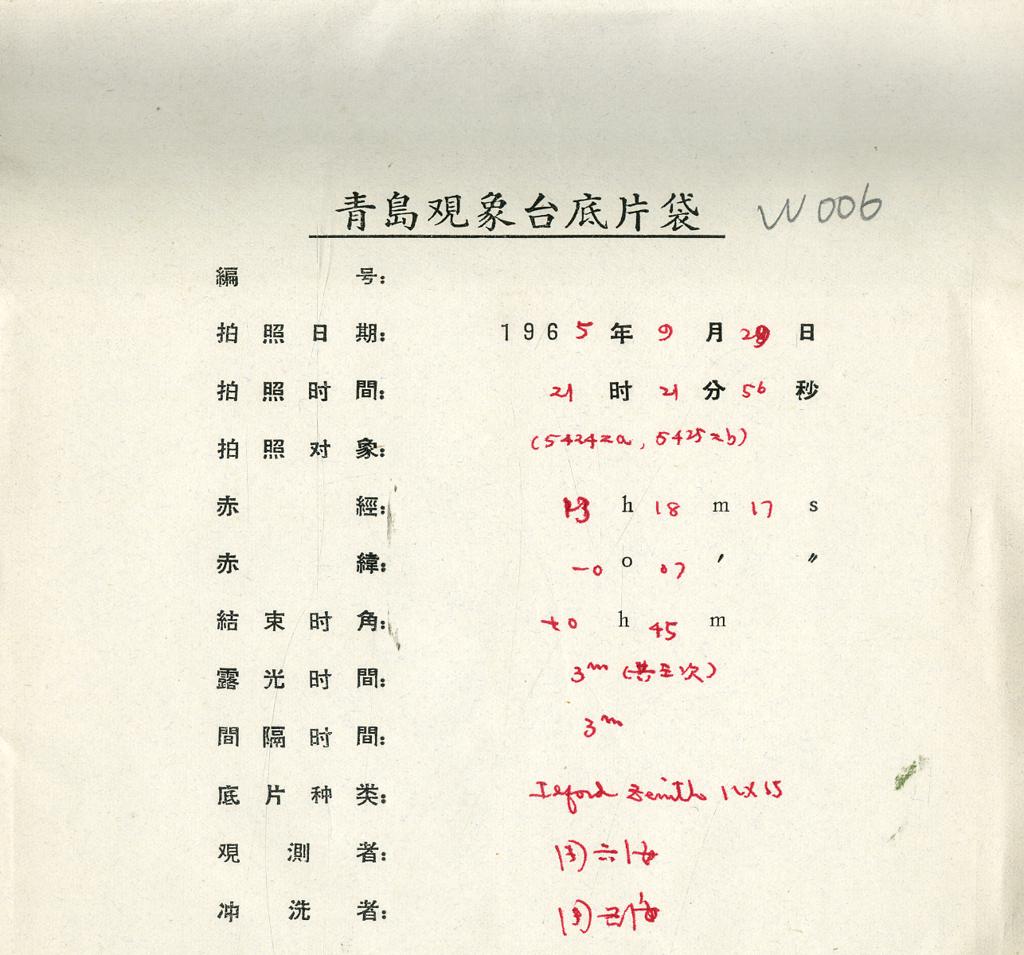 青島观象台底片袋 W006
編号:
拍照日期: 1965年9月29日
拍照时間: 21时21分56秒
拍照对象: (5424za, 5425zb)
赤經: 23h18m17s
赤緯: -0°07′ ″
結束时角: +0h45m
露光时間: 3m(共三次)
間隔时間: 3m
底片种类: Ilford Zenith 12×15
观測者:
冲洗者: